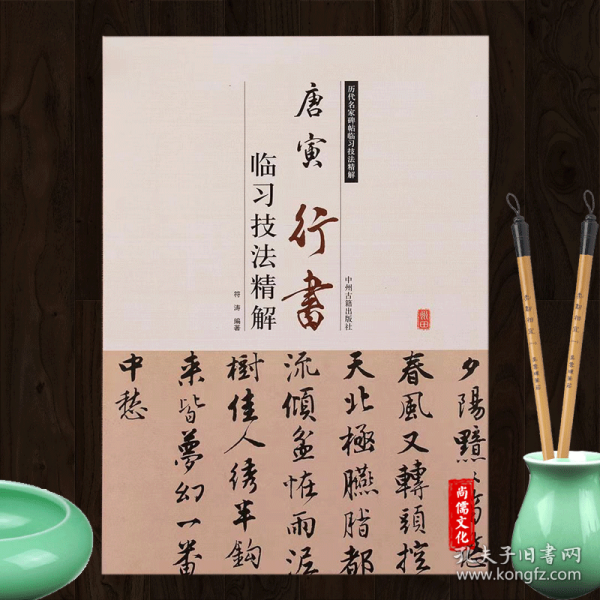 历代名家碑帖临习技法精解
唐寅
行書
临习技法精解
符涛 编著
中州古籍出版社
夕陽黯
春風又轉頭控
天北極臙脂都
流傾盆怪雨泥
樹佳人繡半鈎
来皆夢幻一番
中愁
尚儒文化
孔夫子旧书网
www.kongfz.com